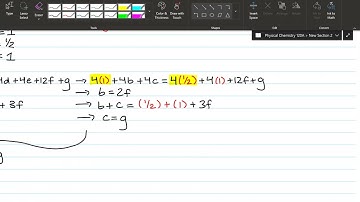 Draw
View
Physical Chemistry 120A – New Section 2
= 1
= ½
= 1
4d+4e+12f+g → 4(1)+4b+4c = 4(½)+4(1)+12f+g
→ b=2f
+3f → b+c = (½)+(1)+3f
→ c=g
g